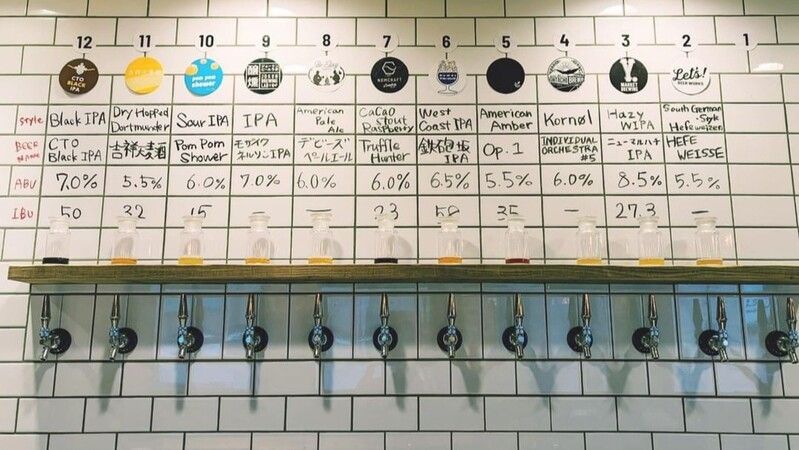 12 11 10 9 8 7 6 5 4 3 2 1
CTO BLACK IPA
pom pom shower
Let's!
BEER WORKS
style
Black IPA
Dry Hopped Dortmunder
Sour IPA
IPA
American Pale Ale
CaCaO stout Raspberry
West Coast IPA
American Amber
Kornøl
Hazy WIPA
South German-Style Hefeweizen
BEER NAME
CTO Black IPA
吉祥大麦
Pom Pom Shower
モザイクネルソンIPA
デビーズペールエール
Truffle Hunter
鉄砲坂IPA
Op.1
INDIVIDUAL ORCHESTRA #5
IPA
HEFE WEISSE
ABU 7.0% 5.5% 6.0% 7.0% 6.0% 6.0% 6.5% 5.5% 6.0% 8.5% 5.5%
IBU 50 32 15 — — 23 50 35 — 27.3 —